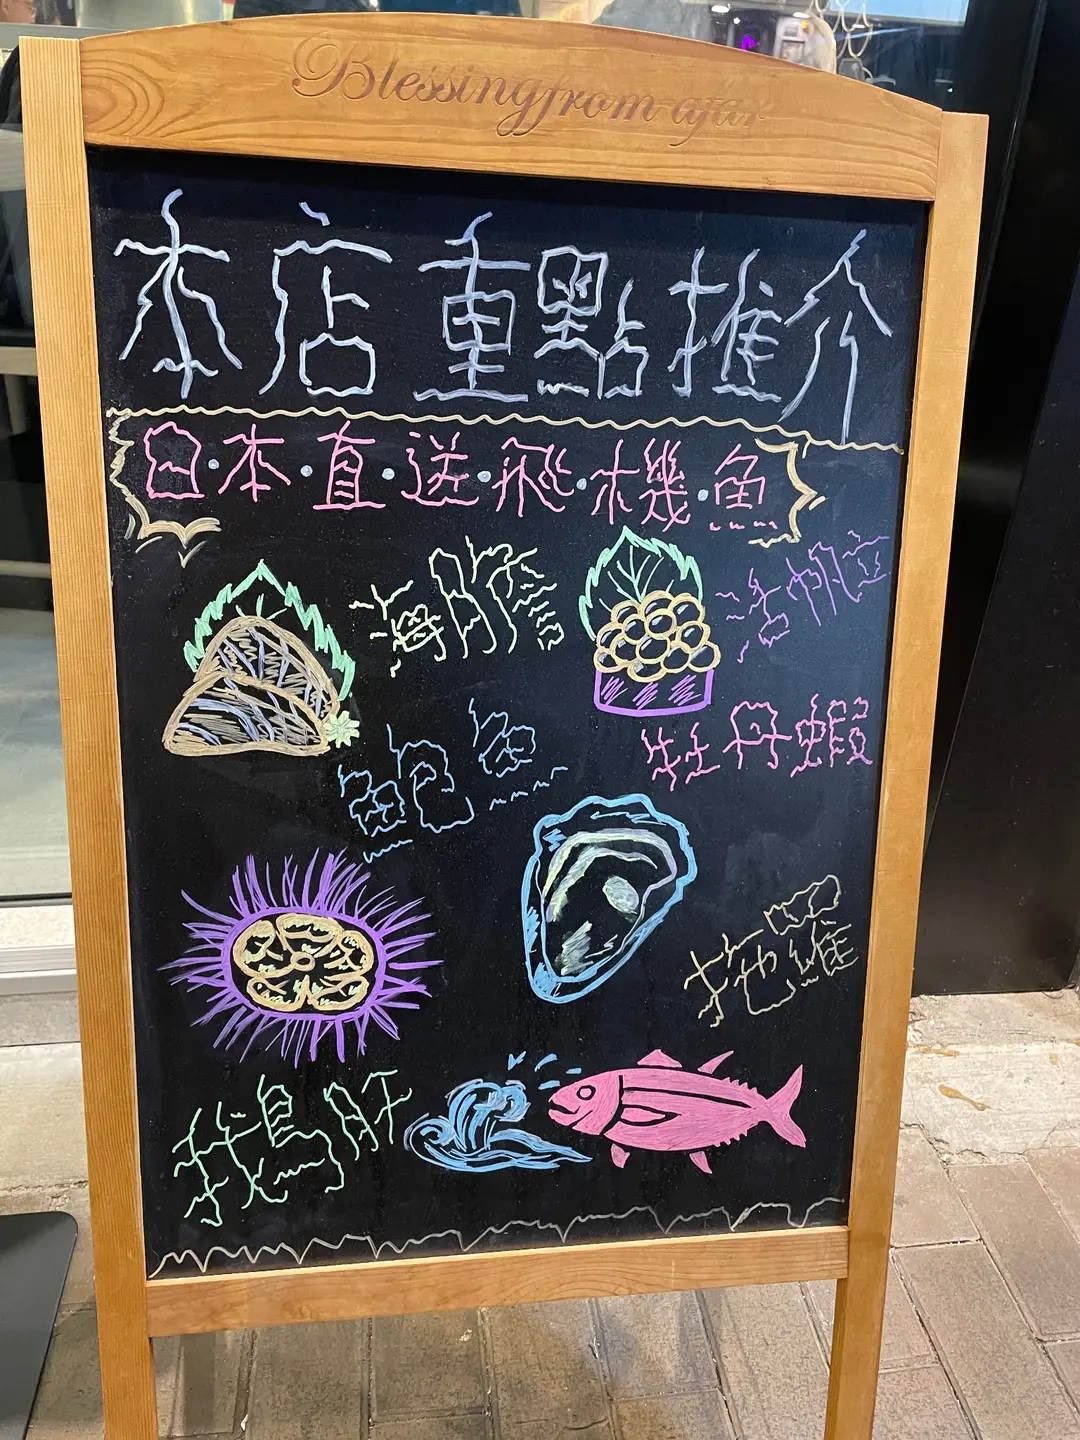 Blessingfrom ajar
本店重點推介
日·本·直·送·飛·機·魚
海膽
鮑魚
牡丹蝦
拖羅
鵝肝